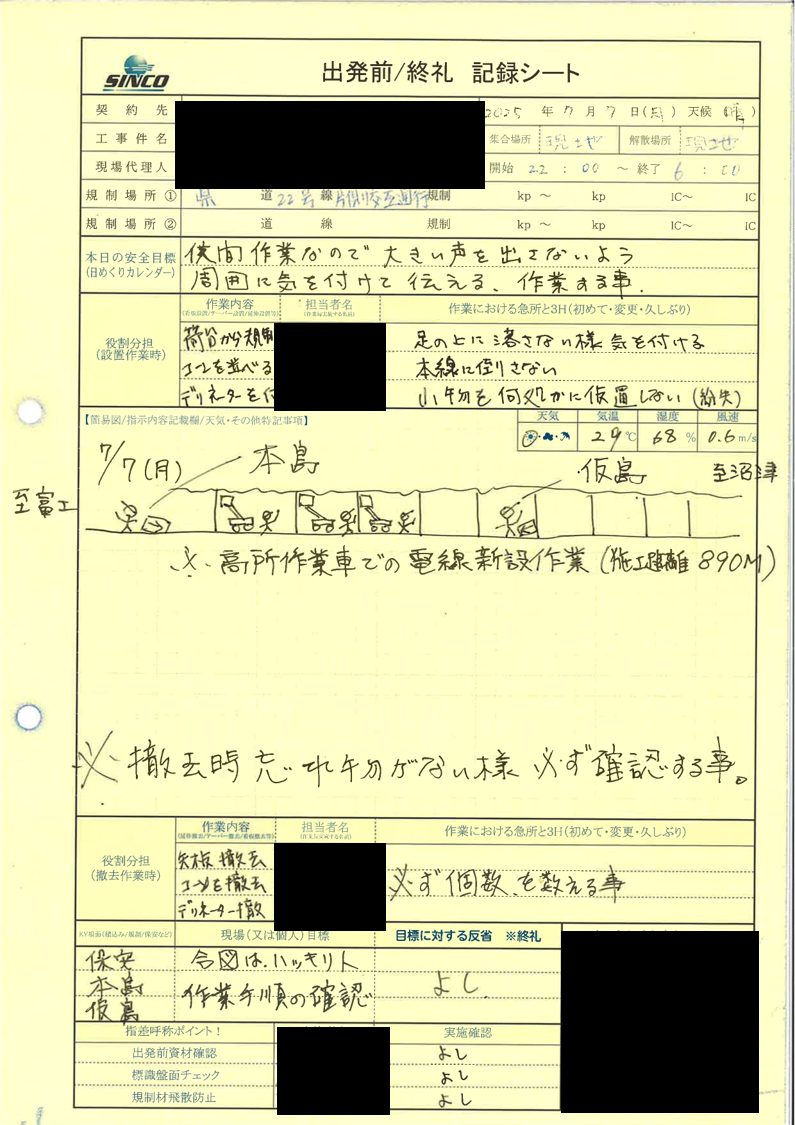 SINCO
出発前/終礼 記録シート
契約先 2025 年 7 月 7 日(月) 天候(晴)
工事件名 集合場所 現地 解散場所 現地
現場代理人 開始 22 : 00 ～ 終了 6 : 00
規制場所① 県 道 22号 線 片側交互通行 規制 kp ～ kp IC～ IC
規制場所② 道 線 規制 kp ～ kp IC～ IC
本日の安全目標 夜間作業なので大きい声を出さないよう
(日めくりカレンダー) 周囲に気を付けて伝える、作業する事.
作業内容 担当者名 作業における急所と3H(初めて・変更・久しぶり)
役割分担
(設置作業時)
荷台から規制 足の上に落さない様気を付ける
コーンを並べる 本線に倒さない
デリネーターを付 小物を何処かに仮置しない(紛失)
【簡易図/指示内容記載欄/天気・その他特記事項】
天気 気温 湿度 風速
29℃ 68% 0.6m/s
7/7(月) 本島 仮島 至沼津
至富士
※高所作業車での電線新設作業(施工距離890M)
※撤去時忘れ物がない様必ず確認する事。
作業内容 担当者名 作業における急所と3H(初めて・変更・久しぶり)
役割分担
(撤去作業時)
矢板撤去
コーンを撤去 必ず個数を数える事
デリネーター撤
KY場面(積込み/規制/保安など) 現場(又は個人)目標 目標に対する反省 ※終礼
保安 合図はハッキリ
本島 作業手順の確認 よし
仮島
指差呼称ポイント! 実施確認
出発前資材確認 よし
標識盤面チェック よし
規制材飛散防止 よし